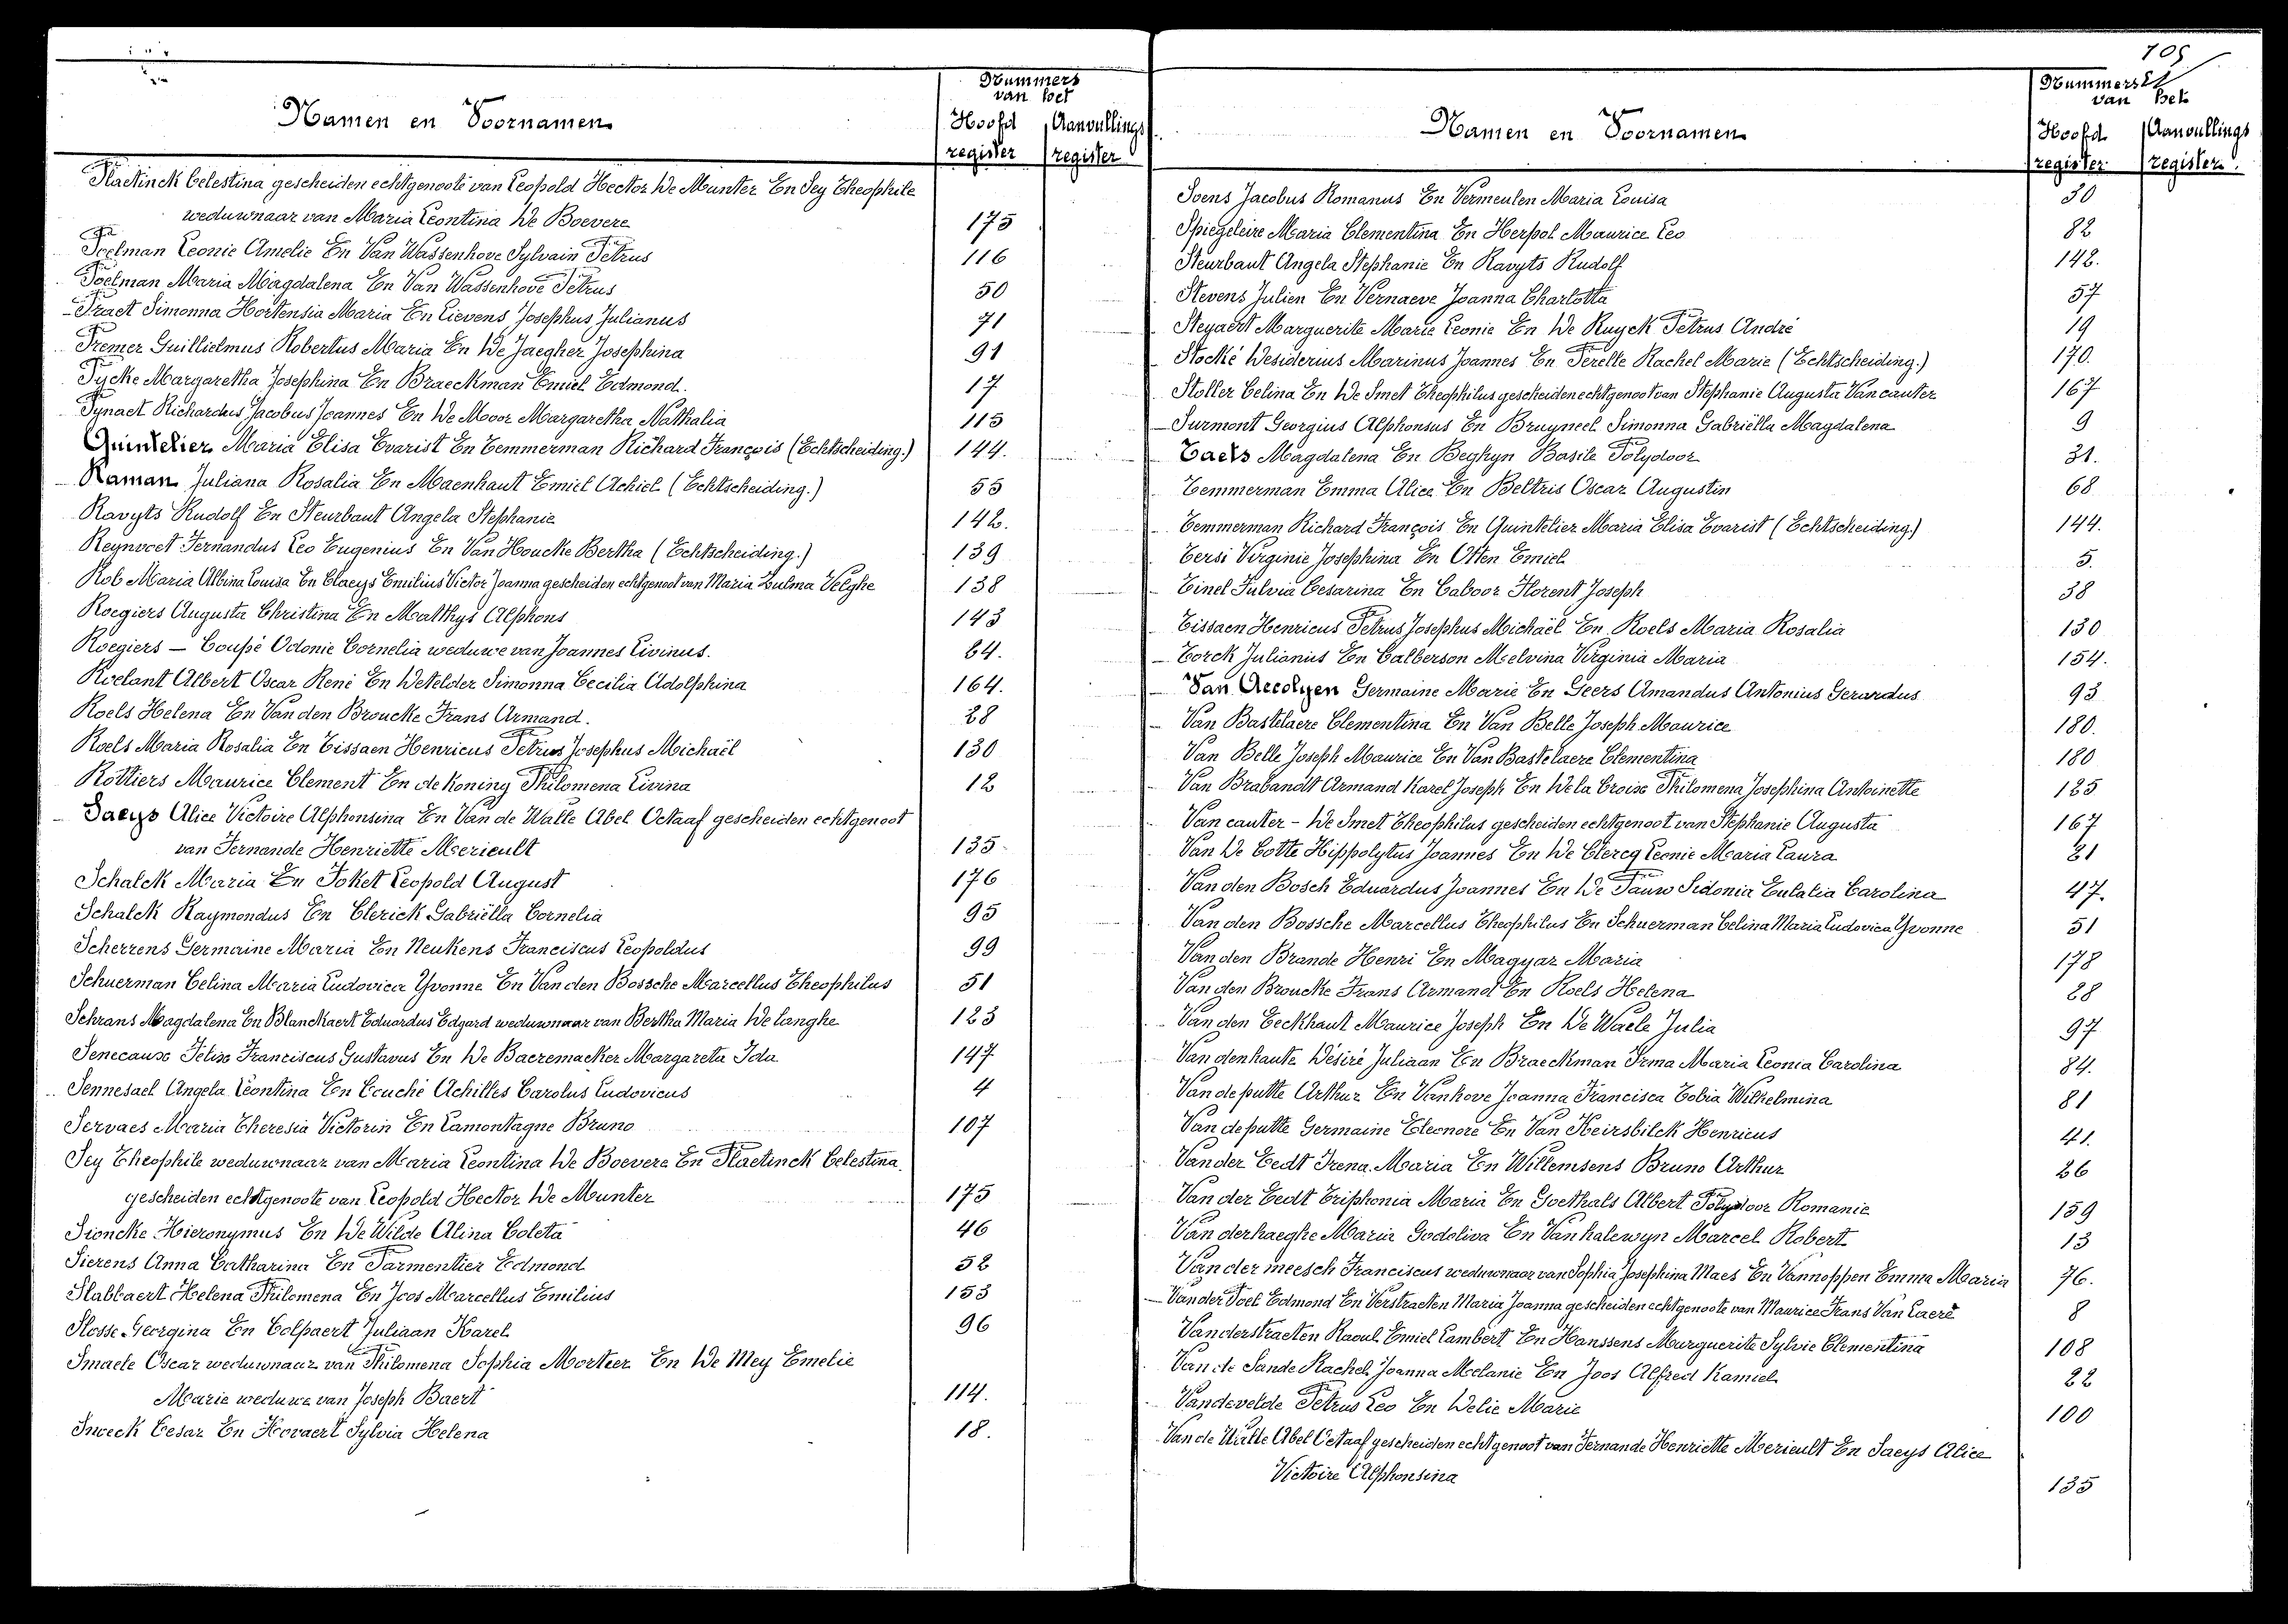 Namen en Voornamen
Nummers
van het
Hoofd register
Aanvullings register
Plactinck Celestina gescheiden echtgenoote van Leopold Hector De Munter En Sey Theophile
weduwnaar van Maria Leontina De Boevere 175
Poelman Leonie Amelie En Van Wassenhove Sylvain Petrus 116
Poelman Maria Magdalena En Van Wassenhove Petrus 50
Praet Simonna Hortensia Maria En Lievens Josephus Julianus 71
Premer Guillielmus Robertus Maria En De Jaegher Josephina 91
Pycke Margaretha Josephina En Braeckman Emiel Edmond. 17
Pynaet Richardus Jacobus Joannes En De Moor Margaretha Nathalia 115
Quintelier Maria Elisa Evarist En Temmerman Richard François (Echtscheiding.) 144.
Raman Juliana Rosalia En Maenhaut Emiel Achiel (Echtscheiding.) 55
Ravyts Rudolf En Steurbaut Angela Stephanie 142.
Reynvoet Fernandus Leo Eugenius En Van Houcke Bertha (Echtscheiding.) 139
Rob Maria Albina Louisa En Claeys Emilius Victor Joanna gescheiden echtgenoot van Maria Zulma Velghe 138
Roegiers Augusta Christina En Matthys Alphons 143
Roegiers — Coupé Odonie Cornelia weduwe van Joannes Livinus. 64.
Roelant Albert Oscar René En Detelder Simonna Cecilia Adolphina 164.
Roels Helena En Van den Broucke Frans Armand. 28
Roels Maria Rosalia En Tissaen Henricus Petrus Josephus Michaël 130
Rottiers Maurice Clement En de Koning Philomena Livina 12
Saeys Alice Victoire Alphonsina En Van de Walle Abel Octaaf gescheiden echtgenoot
van Fernande Henriette Mericult 135
Schalck Maria En Joket Leopold August 176
Schalck Raymondus En Clerick Gabriëlla Cornelia 95
Scherrens Germaine Maria En Neukens Franciscus Leopoldus 99
Schuerman Celina Maria Ludovica Yvonne En Van den Bossche Marcellus Theophilus 51
Schrans Magdalena En Blanckaert Eduardus Edgard weduwnaar van Bertha Maria De Langhe 123
Senecause Felix Franciscus Gustavus En De Baeremacker Margareta Ida 147
Sennesael Angela Leontina En Couché Achilles Carolus Ludovicus 4
Servaes Maria Theresia Victorin En Lamontagne Bruno 107
Sey Theophile weduwnaar van Maria Leontina De Boevere En Plactinck Celestina
gescheiden echtgenoote van Leopold Hector De Munter 175
Sioncke Hieronymus En De Wilde Alina Coleta 46
Sierens Anna Catharina En Parmentier Edmond 52
Slabbaert Helena Philomena En Joos Marcellus Emilius 153
Slosse Georgina En Colpaert Juliaan Karel 96
Smaele Oscar weduwnaar van Philomena Sophia Mortier En De Mey Emelie
Marie weduwe van Joseph Baert 114.
Snoeck Cesar En Hovaert Sylvia Helena 18.
105
Namen en Voornamen
Nummers
van het
Hoofd register
Aanvullings register.
Soens Jacobus Romanus En Vermeulen Maria Louisa 30
Spiegeleire Maria Clementina En Herpol Maurice Leo 82
Steurbaut Angela Stephanie En Ravyts Rudolf 142.
Stevens Julien En Vernaeve Joanna Charlotta 57
Steyaert Marguerite Marie Leonie En De Ruyck Petrus André 19
Stocké Desiderius Marinus Joannes En Perelle Rachel Marie (Echtscheiding.) 170.
Stoller Celina En De Smet Theophilus gescheiden echtgenoot van Stephanie Augusta Van cauter 167
Surmont Georgius Alphonsus En Bruyneel Simonna Gabriëlla Magdalena 9
Taels Magdalena En Beghyn Basile Polydoor 31.
Temmerman Emma Alice En Beltris Oscar Augustin 68
Temmerman Richard François En Quintelier Maria Elisa Evarist (Echtscheiding.) 144.
Tersi Virginie Josephina En Otten Emiel 5.
Tinel Fulvia Cesarina En Caboor Florent Joseph 38
Tissaen Henricus Petrus Josephus Michaël En Roels Maria Rosalia 130
Torck Julianus En Calberson Melvina Virginia Maria 154.
Van Accolyen Germaine Marie En Geers Amandus Antonius Gerardus 93
Van Bastelaere Clementina En Van Belle Joseph Maurice 180.
Van Belle Joseph Maurice En Van Bastelaere Clementina 180
Van Brabandt Armand Karel Joseph En De la Croix Philomena Josephina Antoinette 125
Van cauter – De Smet Theophilus gescheiden echtgenoot van Stephanie Augusta 167
Van De Cotte Hippolytus Joannes En De Clercq Leonie Maria Laura 21
Van den Bosch Eduardus Joannes En De Pauw Sidonia Eulalia Carolina 47.
Van den Bossche Marcellus Theophilus En Schuerman Celina Maria Ludovica Yvonne 51
Van den Brande Henri En Magyar Maria 178
Van den Broucke Frans Armand En Roels Helena 28
Van den Eeckhaut Maurice Joseph En De Waele Julia 97
Van denhaute Désiré Juliaan En Braeckman Irma Maria Leonia Carolina 84.
Van de putte Arthur En Vanhove Joanna Francisca Tobia Wilhelmina 81
Van de putte Germaine Eleonore En Van Heirsbilck Henricus 41.
Van der Eedt Irena Maria En Willemsens Bruno Arthur 26
Van der Eedt Triphonia Maria En Goethals Albert Polydoor Romanie 159
Van derhaeghe Maria Godeliva En Van halewyn Marcel Robert 13
Van der meesch Franciscus weduwnaar van Sophia Josephina Maes En Vannoppen Emma Maria 76.
Van der Poel Edmond En Verstraeten Maria Joanna gescheiden echtgenoote van Maurice Frans Van Laere 8
Vanderstraeten Raoul Emiel Lambert En Hanssens Marguerite Sylvie Clementina 108
Van de Sande Rachel Joanna Melanie En Joos Alfred Kamiel 22
Vandevelde Petrus Leo En Delie Marie 100
Van de Walle Abel Octaaf gescheiden echtgenoot van Fernande Henriette Mericult En Saeys Alice
Victoire Alphonsina 135